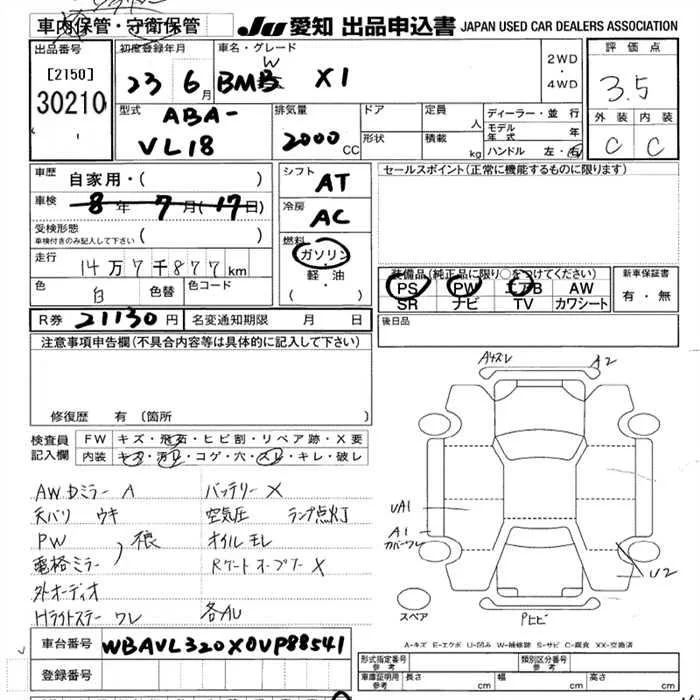 車内保管・守衛保管
JU 愛知 出品申込書 JAPAN USED CAR DEALERS ASSOCIATION
出品番号
[2150]
30210
初度登録年月
23 6月
車名・グレード
BMW X1
2WD
・
4WD
評価点
3.5
外装 内装
C C
型式
ABA-
VL18
排気量
2000 CC
ドア
形状
定員 人
積載 kg
ディーラー・並行
モデル年式 年
ハンドル 左・右
車歴 自家用・( )
車検 8年 7月(17日)
受検形態
車検付きのみ記入して下さい ( )
走行 14万7千877 km
色 白 色替 色コード
シフト AT
冷房 AC
燃料
ガソリン
・
軽油
( )
セールスポイント(正常に機能するものに限ります)
装備品(純正品に限り○をつけてください)
PS PW エアB AW
SR ナビ TV カワシート
新車保証書
有・無
R券 21130円 名変通知期限 月 日
後日品
注意事項申告欄(不具合内容等は具体的に記入して下さい)
修復歴 有(箇所 )
検査員記入欄
FW キズ・飛石・ヒビ割・リペア跡・X要
内装 キズ・汚レ・コゲ・穴・スレ・キレ・破レ
AWDミラーA バッテリーX
天バリ ウキ 空気圧 ランプ点灯
PW オイルモレ
電格ミラー
外オーディオ
ワレ 各AU
A4スレ A2
UA1
A1
カバーワレ
U2
Pヒビ
スペア
A-キズ E-エクボ U-凹み W-補修跡 S-サビ C-腐食 XX-交換済
車台番号 WBAVL320X0VP88541
登録番号
形式指定番号
参考
類別区分番号
参考
車庫証明用
参考
長さ cm 幅 cm 高さ cm